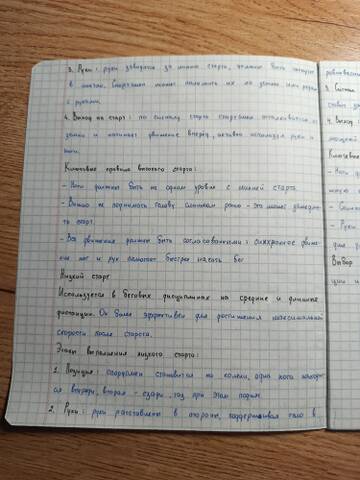 3. Руки: руки заводятся за линию старта, должны быть согнуты
в локтях. Спортсмен может положить их на землю или рядом
с руками.
4. Выход на старт: по сигналу старта спортсмен отталкивается от
земли и начинает движение вперёд, активно используя руки и
ноги.
Ключевые правила высокого старта:
- Ноги должны быть на одном уровне с линией старта
- Важно не поднимать голову слишком рано - это может замедлить
ть старт.
- Все движения должны быть согласованными: синхронное движе-
ние ног и рук помогает быстрее начать бег
Низкий старт
Используется в беговых дисциплинах на средние и длинные
дистанции. Он более эффективен для достижения максимальной
скорости после старта.
Этапы выполнения низкого старта:
1. Позиция: спортсмен становится на колени, одна нога находит-
ся впереди, вторая - сзади, таз при этом поднят.
2. Руки: руки расставлены в стороны, поддерживая тело в
3. Система
4. Выход
Ключевые
- Ноги
- Руки
Выбор